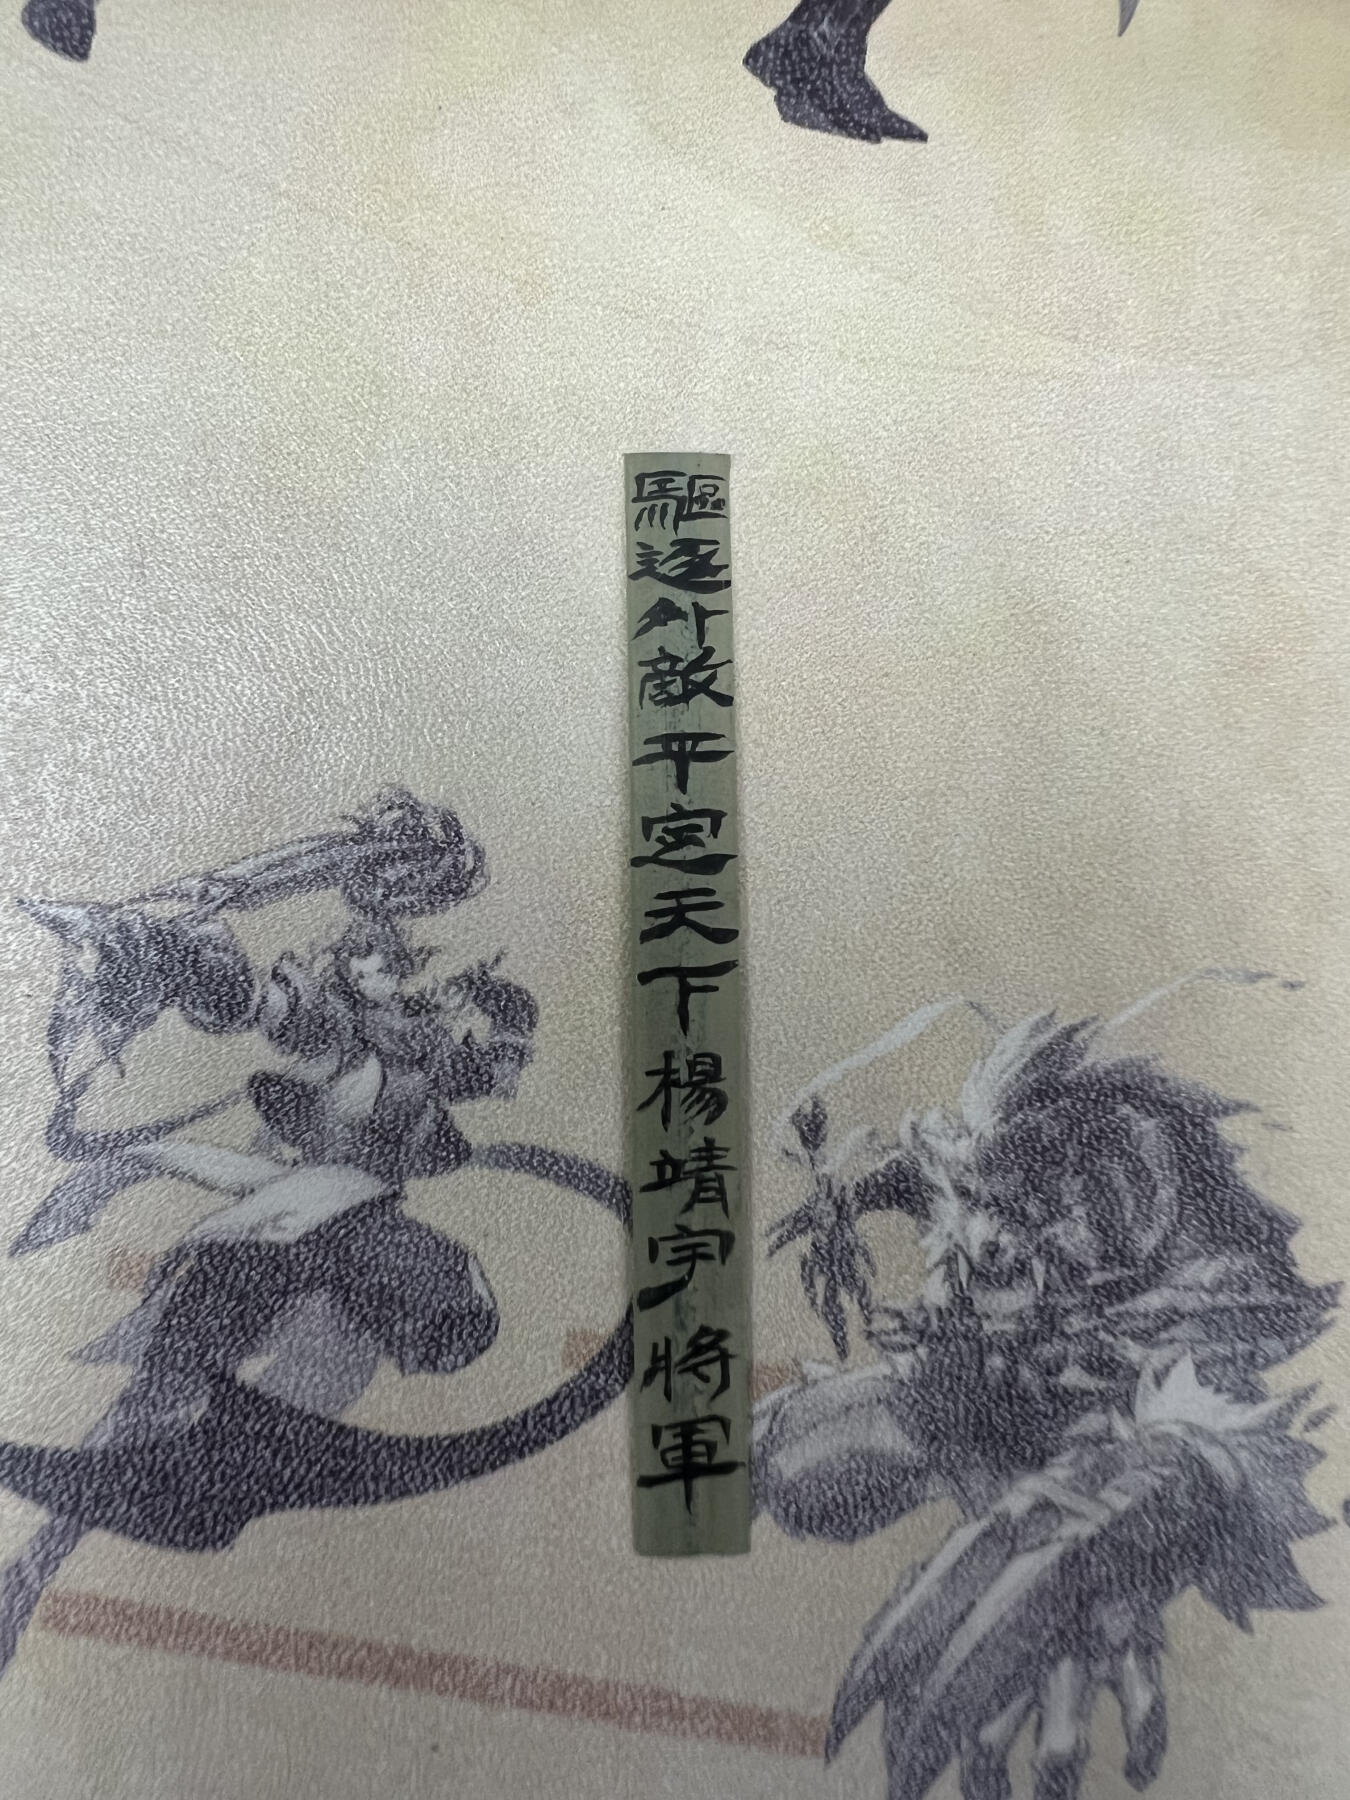 驅逐外敵平定天下楊靖宇將軍